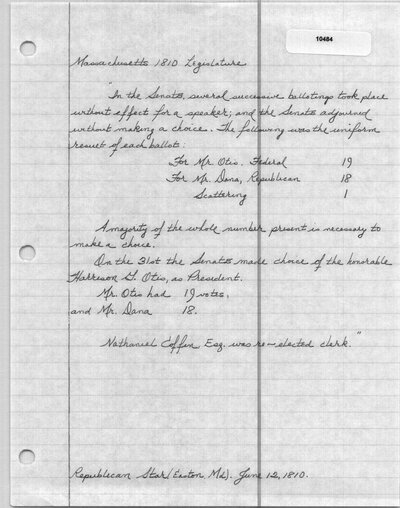 10484
Massachusetts 1810 Legislature
"In the Senate, several successive ballotings took place
without effect for a speaker; and the Senate adjourned
without making a choice. The following was the uniform
result of each ballot:
For Mr. Otis, Federal 19
For Mr. Dana, Republican 18
Scattering 1
A majority of the whole number present is necessary to
make a choice.
On the 31st the Senate made choice of the honorable
Harrison G. Otis, as President.
Mr. Otis had 19 votes,
and Mr. Dana 18.
Nathaniel Coffin, Esq. was re-elected clerk."
Republican Star (Easton, Md). June 12, 1810.